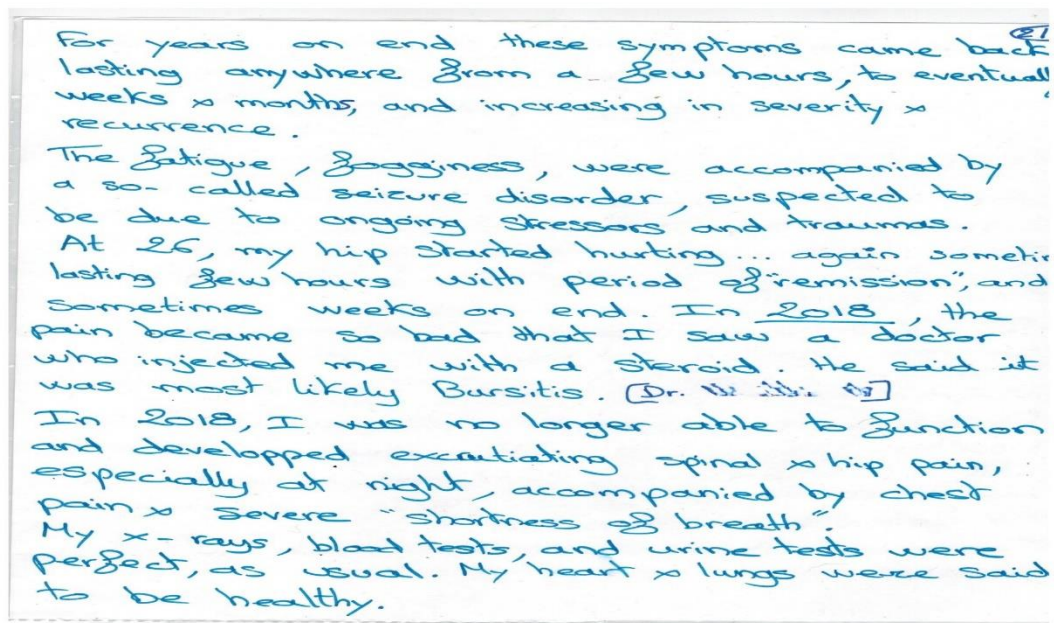 For years on end these symptoms came back
lasting anywhere from a few hours, to eventuall
weeks & months, and increasing in severity &
recurrence.
The fatigue, fogginess, were accompanied by
a so-called seizure disorder, suspected to
be due to ongoing stressors and traumas.
At 26, my hip started hurting... again sometim
lasting few hours with period of "remission", and
sometimes weeks on end. In 2018, the
pain became so bad that I saw a doctor
who injected me with a steroid. He said it
was most likely Bursitis. [Dr.]
In 2018, I was no longer able to function
and developped excrutiating spinal & hip pain,
especially at night, accompanied by chest
pain & severe "shortness of breath".
My x-rays, blood tests, and urine tests were
perfect, as usual. My heart & lungs were said
to be healthy.